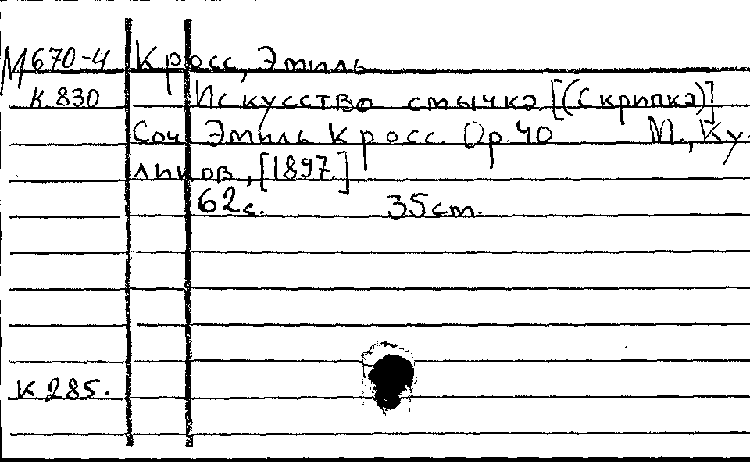 М670-4 Кросс, Эмиль
К 830 Искусство смычка [(Скрипка)]
Соч. Эмиль Кросс. Op. 40 М., Ку-
ликов, [1897]
62 с. 35 cm.
К 285.